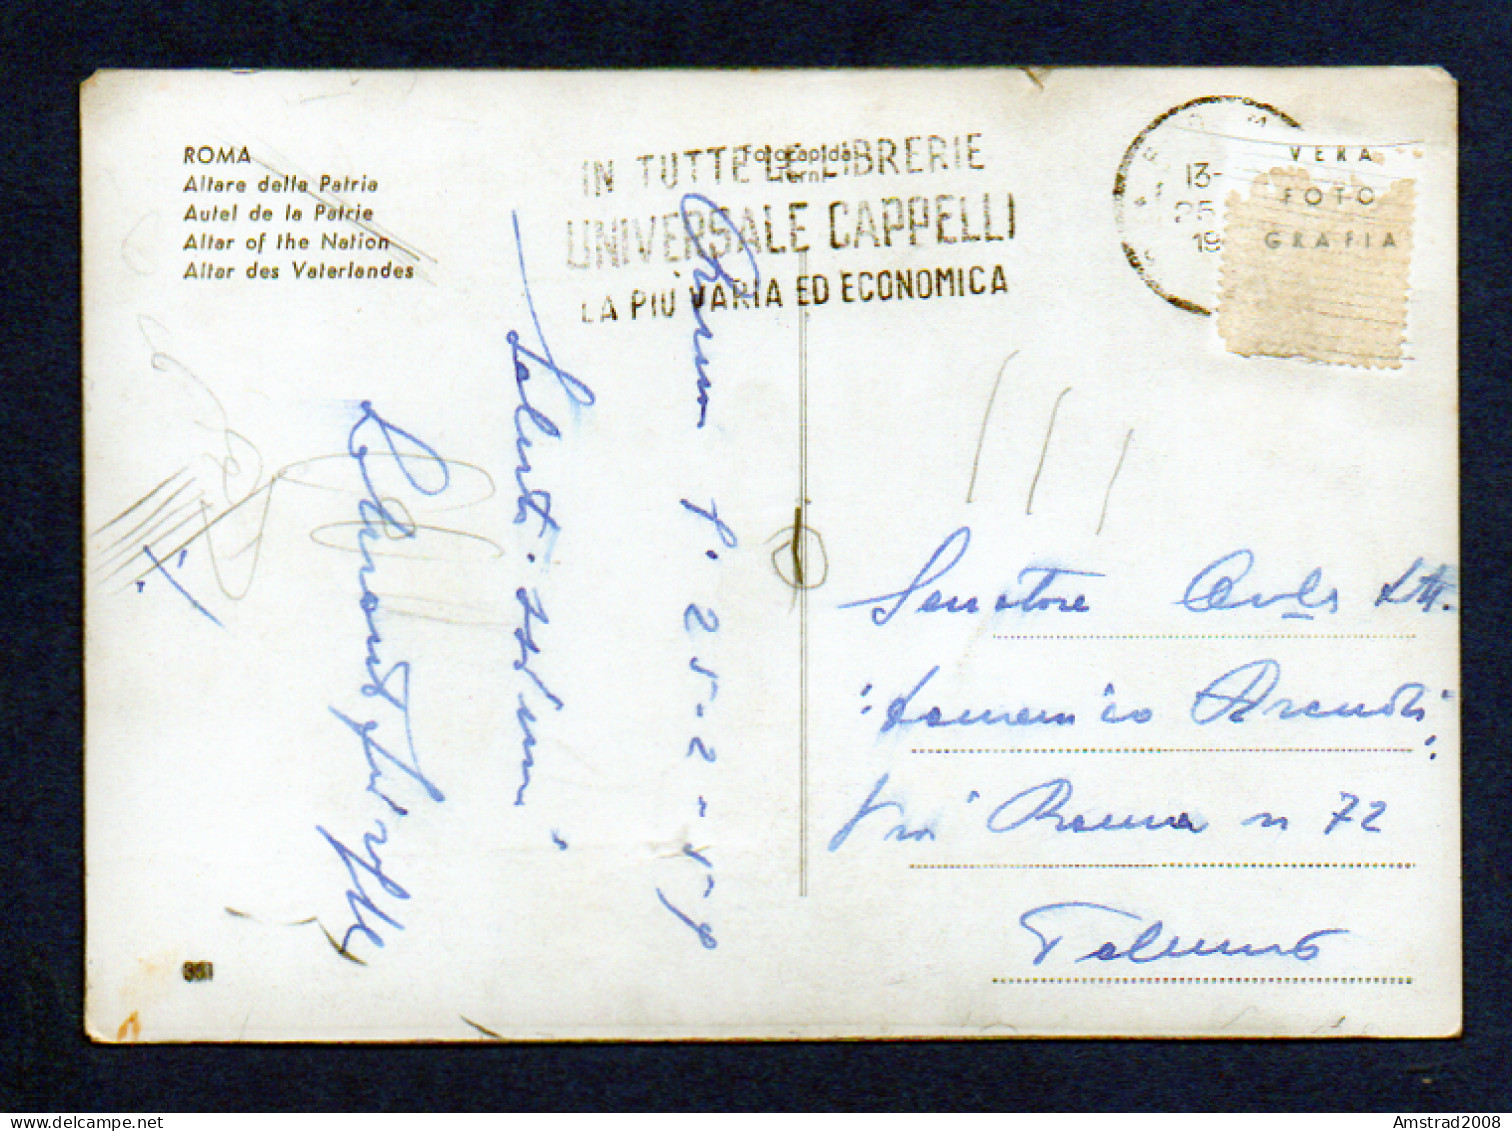 ROMA
Altare della Patria
Autel de la Patrie
Altar of the Nation
Altar des Vaterlandes
Fotocapida
Terni
IN TUTTE LE LIBRERIE
UNIVERSALE CAPPELLI
LA PIÙ VARIA ED ECONOMICA
13-
25
19
VERA
FOTO
GRAFIA
Roma 25-2-59
Saluti
Senatore
Domenico
Via Roma n 72
Palermo
351
Amstrad2008